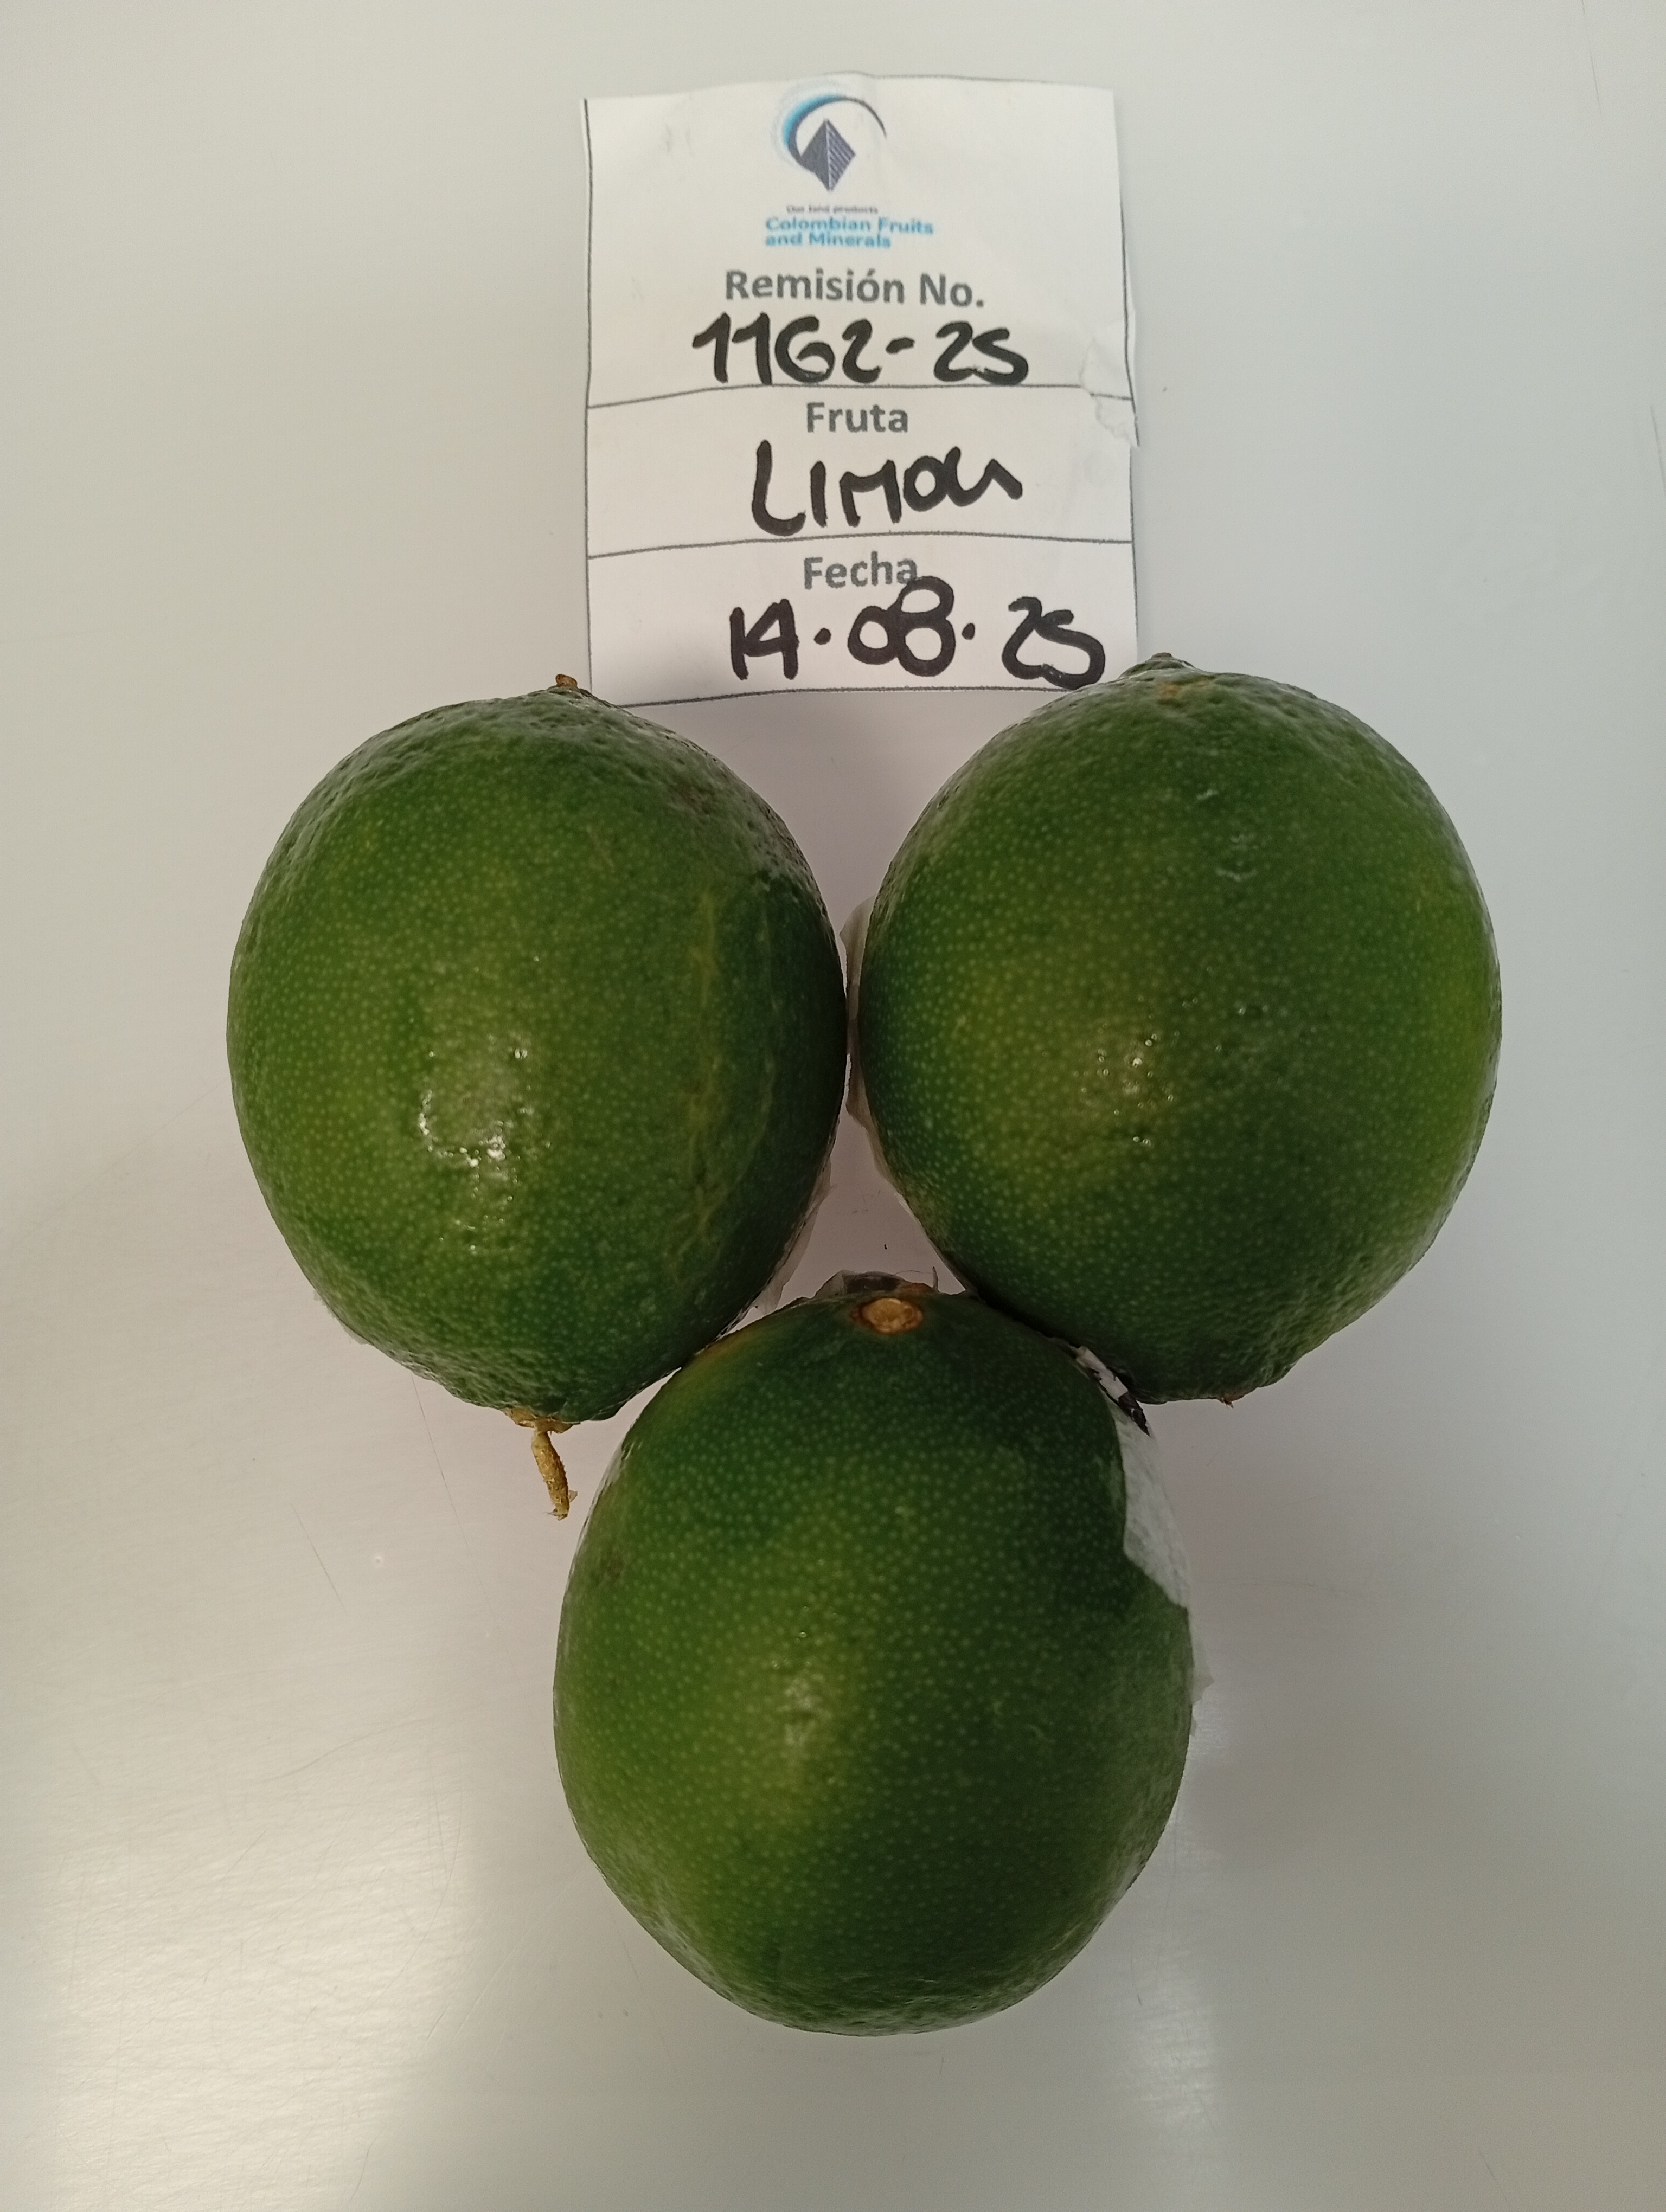 Our land products
Colombian Fruits
and Minerals
Remisión No.
1162-25
Fruta
LIMON
Fecha
14.08.25